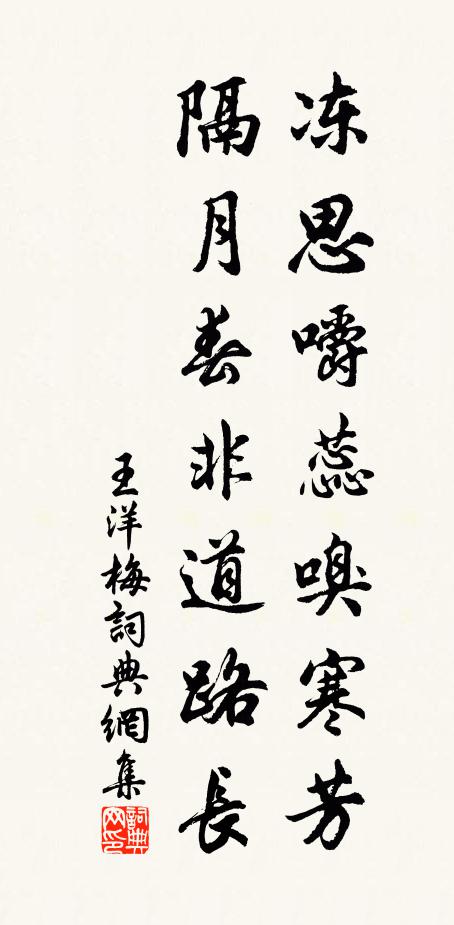 冻思嚼蕊嗅寒芳
隔月春非道路長
王洋梅詞典網集
詞典网印